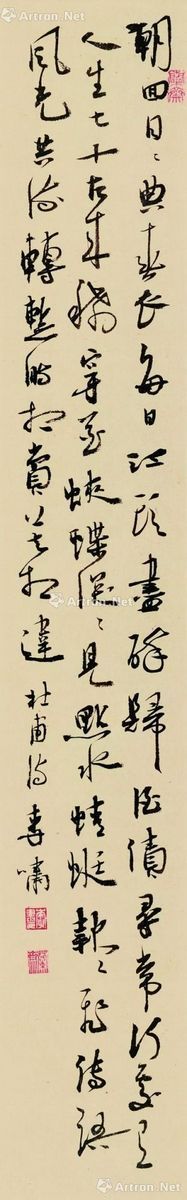 朝回日々典春衣每日江頭盡醉歸酒債尋常行處有
人生七十古来稀穿花蛺蝶深々見點水蜻蜓款々飛傳語
風光共流轉暫時相賞莫相違 杜甫詩 李嘯
Artron.Net